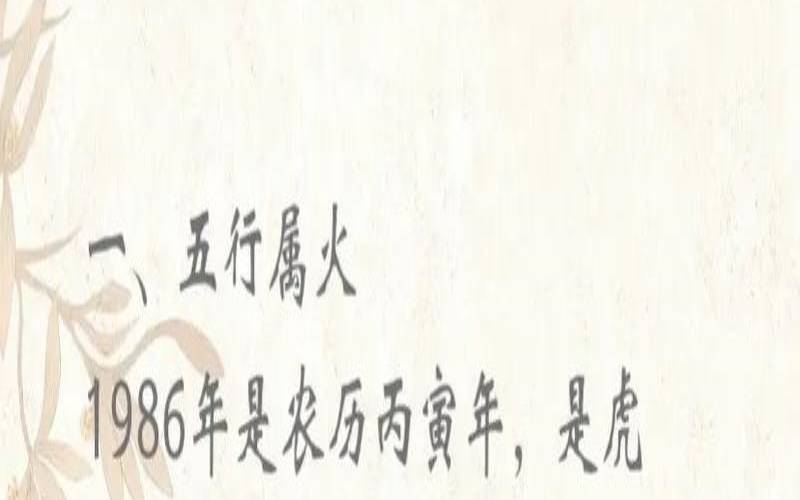 一、五行属火
1986年是农历丙寅年，是虎